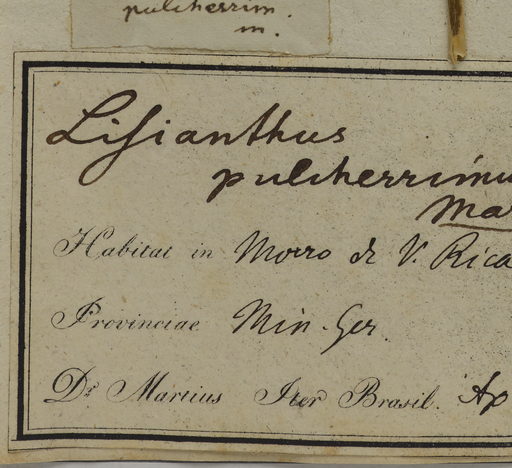 pulcherrim.
m.
Lisianthus
pulcherrimu
Mar
Habitat in Morro de V. Rica
Provinciae Min. Ger.
Dr Martius Iter Brasil. Ap